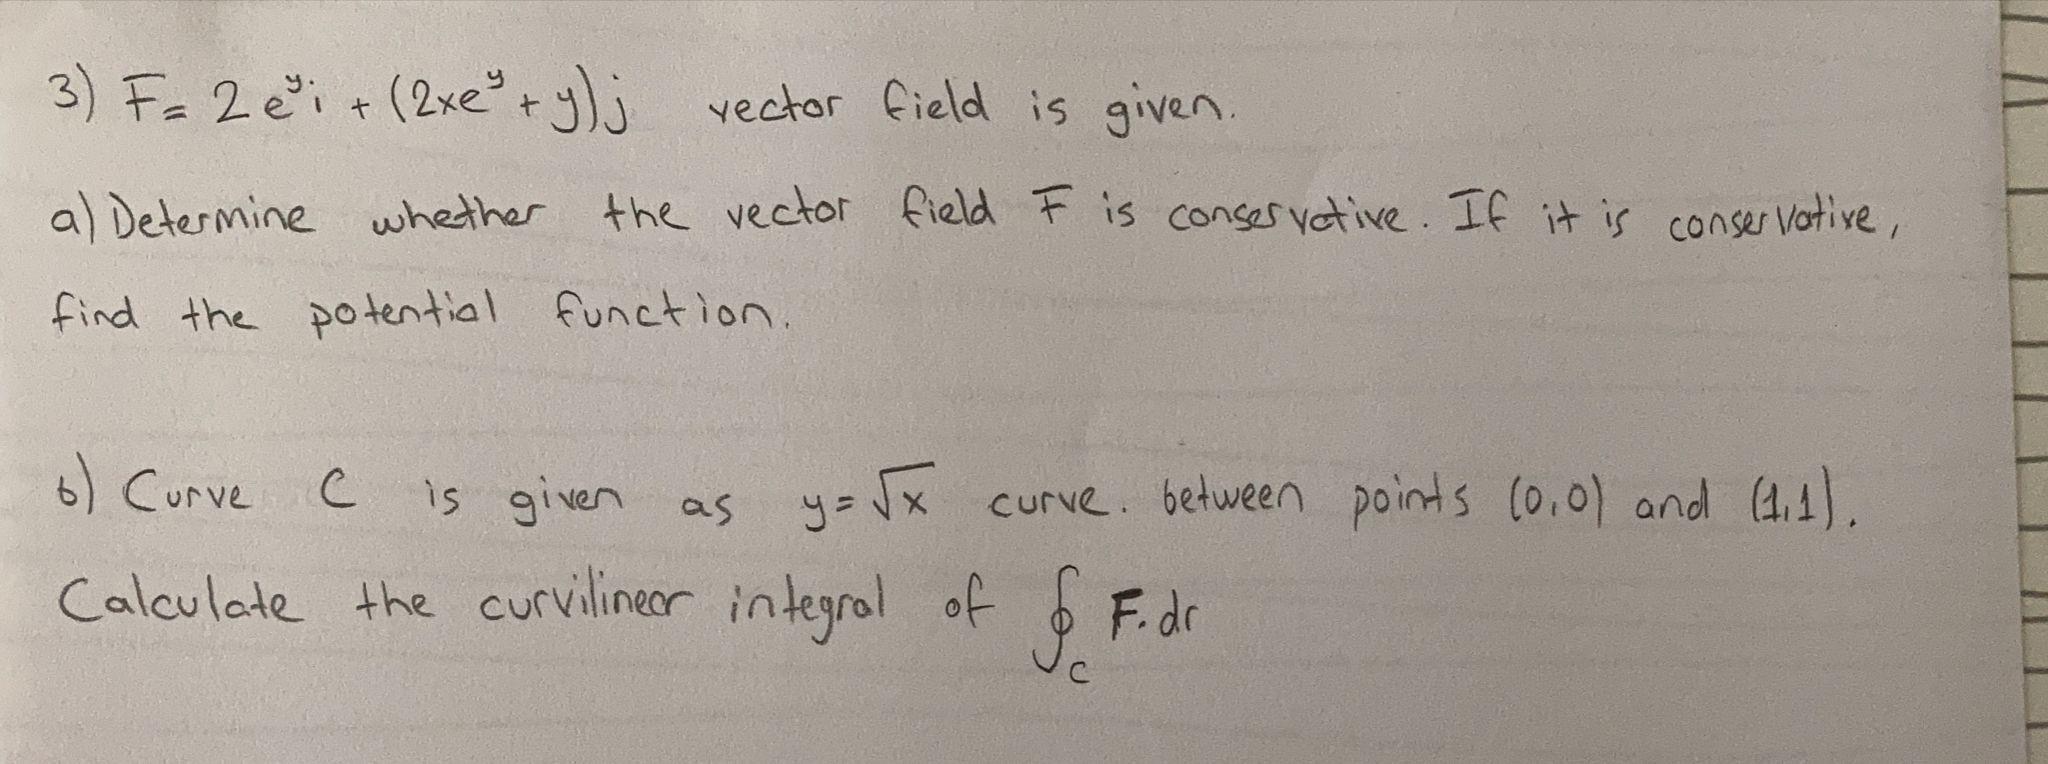 3) F = 2e^y i + (2xe^y + y)j vector field is given.
a) Determine whether the vector field F is conservative. If it is conservative,
find the potential function.
b) Curve C is given as y=√x curve. between points (0,0) and (1,1).
Calculate the curvilinear integral of ∮_C F.dr